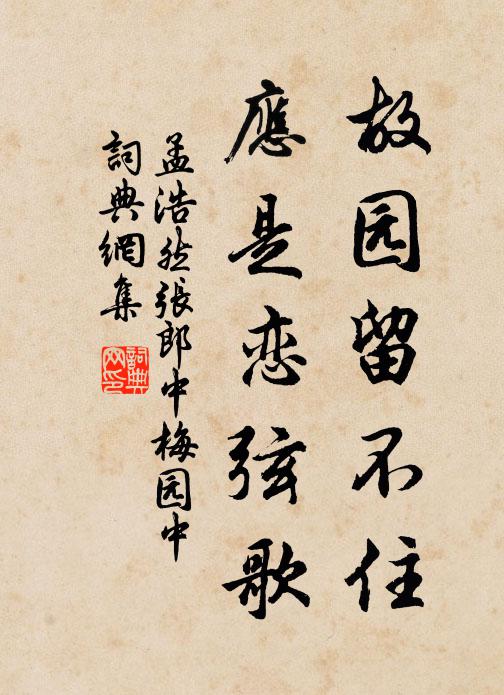 故园留不住
應是恋弦歌
孟浩然張郎中梅园中
詞典網集
詞典網印